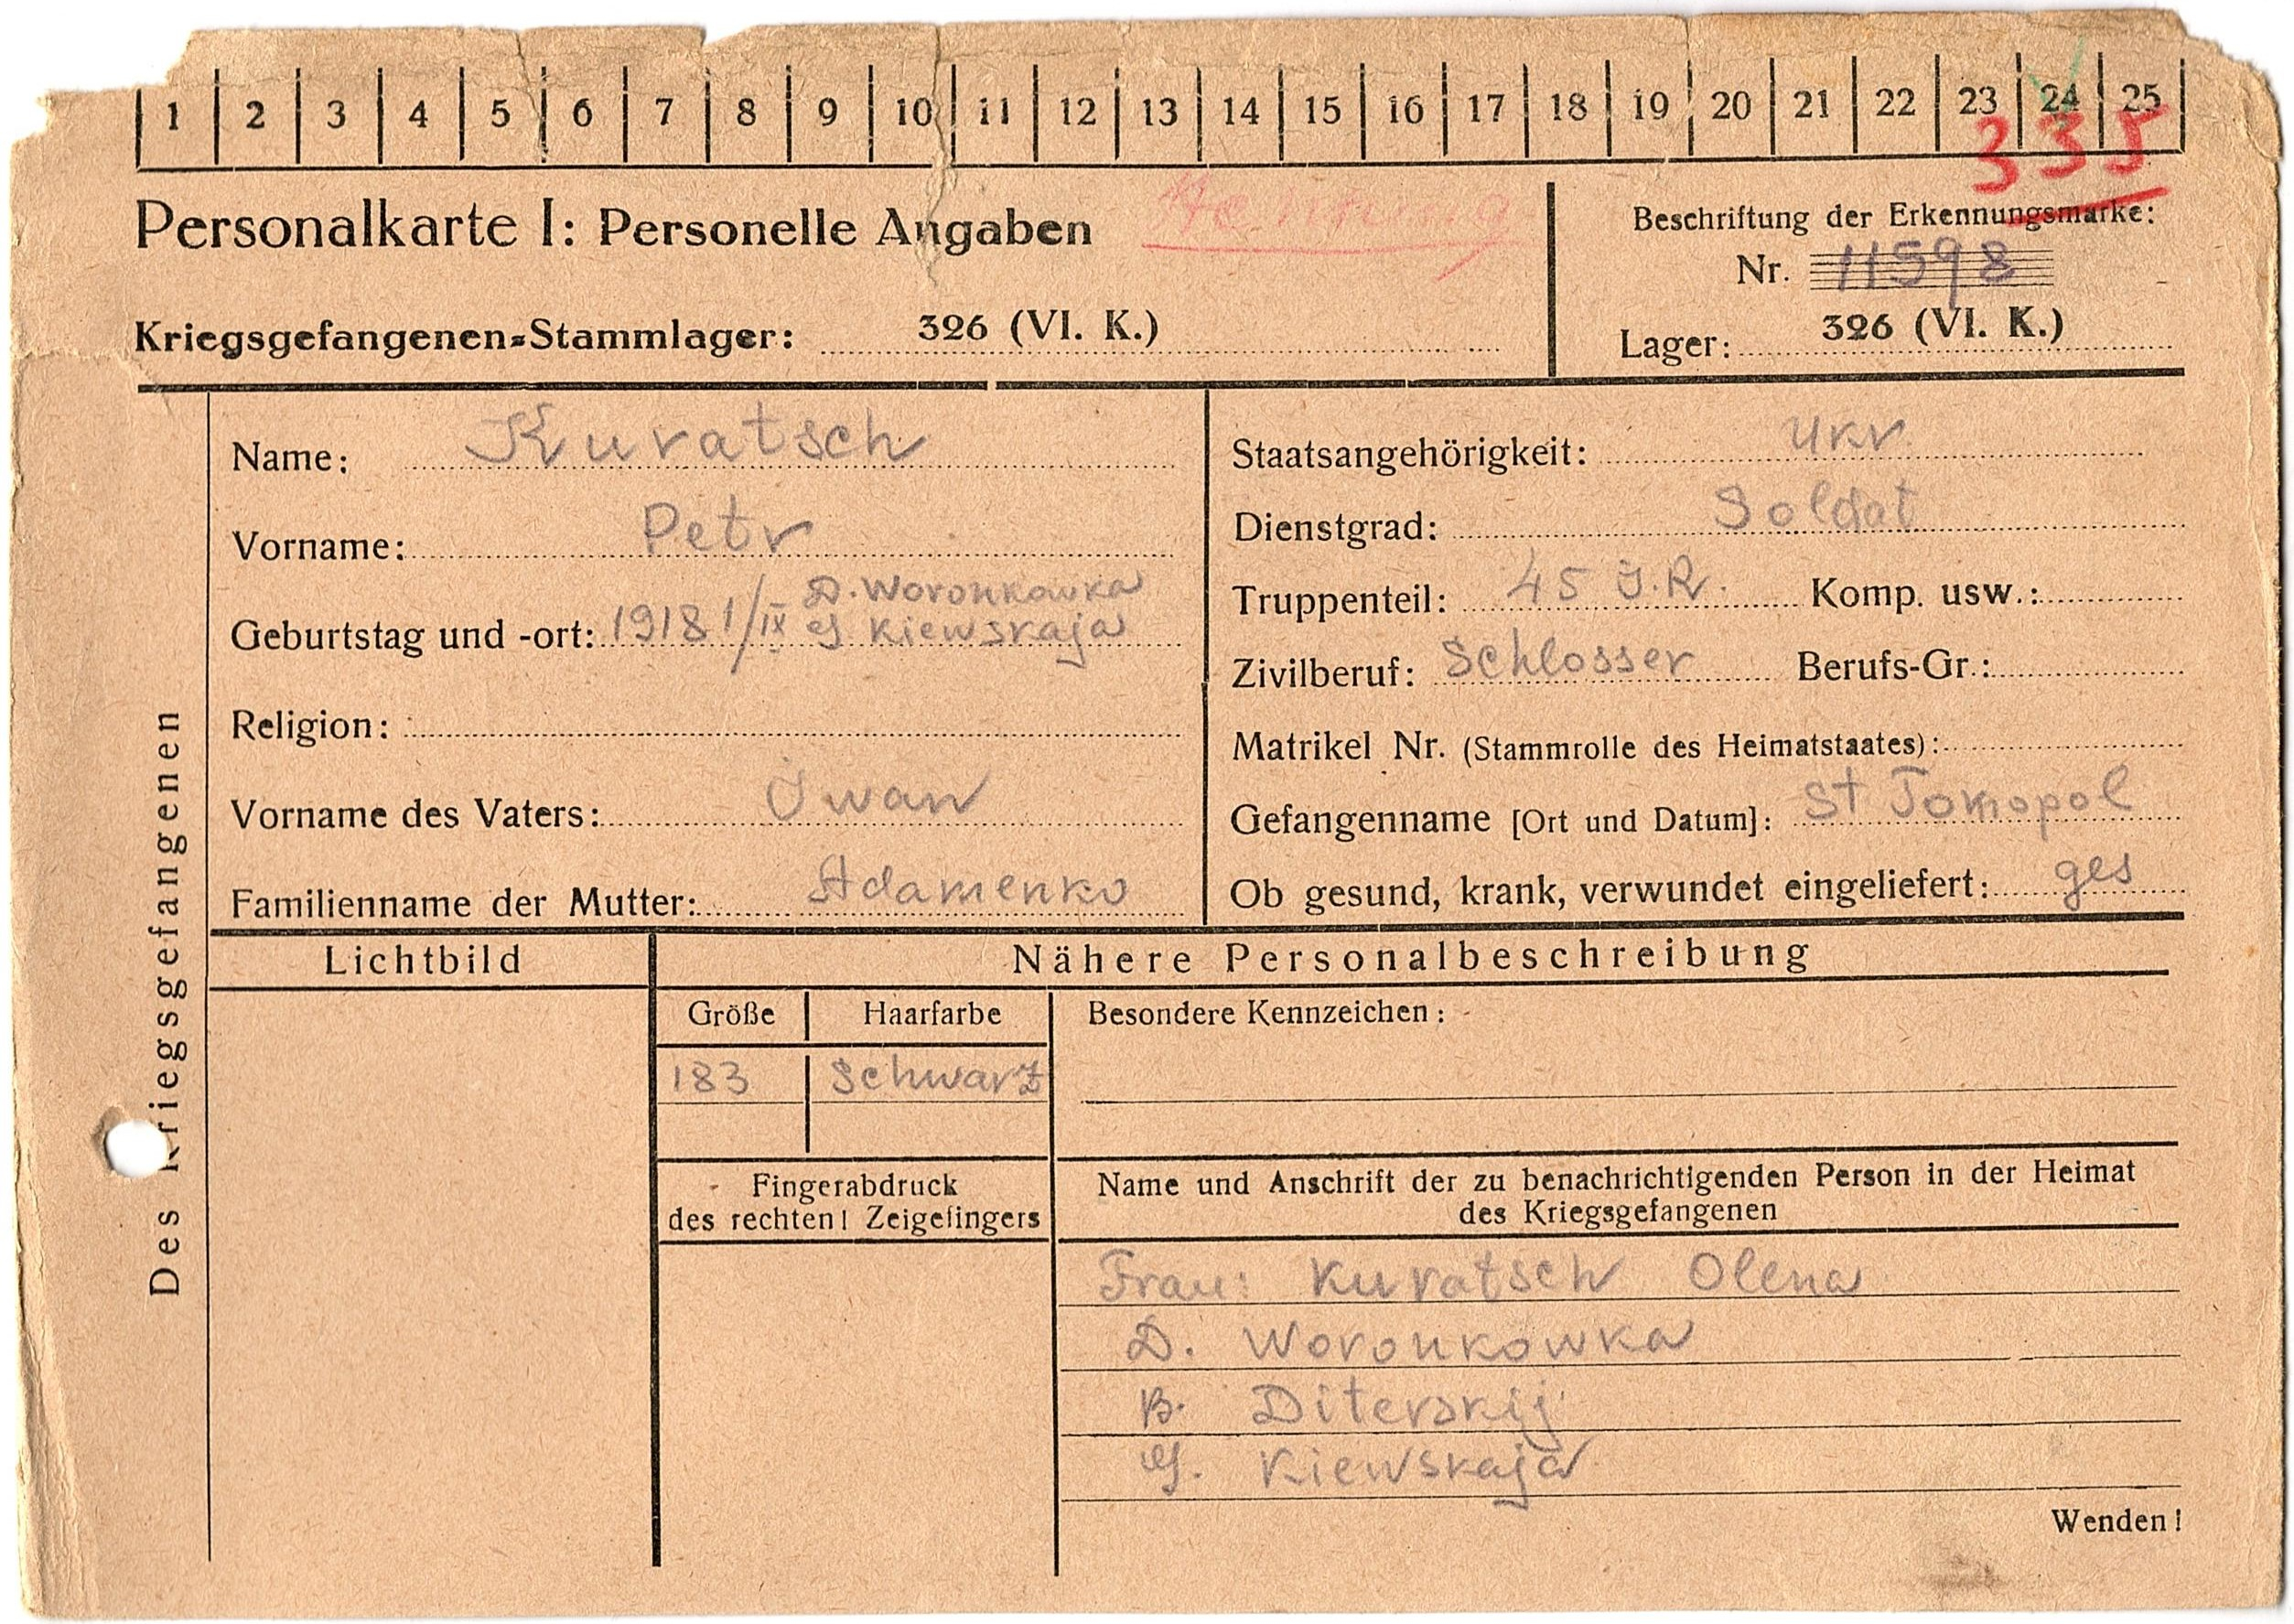 1 2 3 4 5 6 7 8 9 10 11 12 13 14 15 16 17 18 19 20 21 22 23 24 25
335
Personalkarte I: Personelle Angaben
Beschriftung der Erkennungsmarke:
Nr. 11598
Kriegsgefangenen-Stammlager: 326 (VI. K.)
Lager: 326 (VI. K.)
Des Kriegsgefangenen
Name: Kuratsch
Vorname: Petr
D. Woronkowka
Geburtstag und -ort: 1918 1/IX G Kiewskaja
Religion:
Vorname des Vaters: Iwan
Familienname der Mutter: Adamenko
Staatsangehörigkeit: Ukr
Dienstgrad: Soldat
Truppenteil: 45 J.R. Komp. usw.:
Zivilberuf: Schlosser Berufs-Gr.:
Matrikel Nr. (Stammrolle des Heimatstaates):
Gefangenname [Ort und Datum]: St
Ob gesund, krank, verwundet eingeliefert: ges
Lichtbild
Nähere Personalbeschreibung
Größe Haarfarbe
183 Schwarz
Besondere Kennzeichen:
Fingerabdruck
des rechten! Zeigefingers
Name und Anschrift der zu benachrichtigenden Person in der Heimat
des Kriegsgefangenen
Frau: Kuratsch Olena
D. Woronkowka
B. Diterskij
G. Kiewskaja
Wenden!